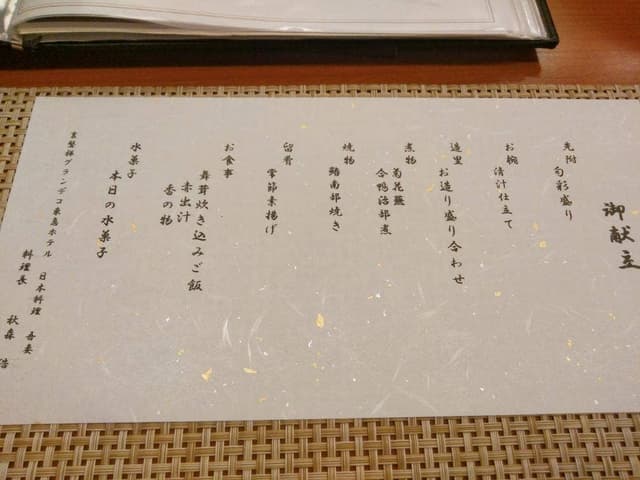 御献立
先附
旬彩盛り
お椀
清汁仕立て
造里
お造り盛り合わせ
煮物
菊花蕪
合鴨治部煮
焼物
鮭南部焼き
留肴
季節素揚げ
お食事
舞茸炊き込みご飯
赤出汁
香の物
水菓子
本日の水菓子
裏磐梯グランデコ東急ホテル 日本料理 吾妻
料理長 秋森 浩